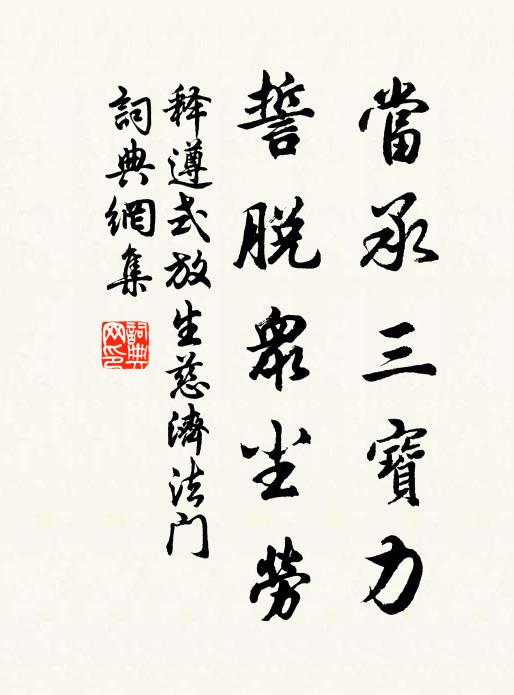 當承三寶力
誓脱衆尘勞
释遵式放生慈濟法门
詞典網集
詞典
网印